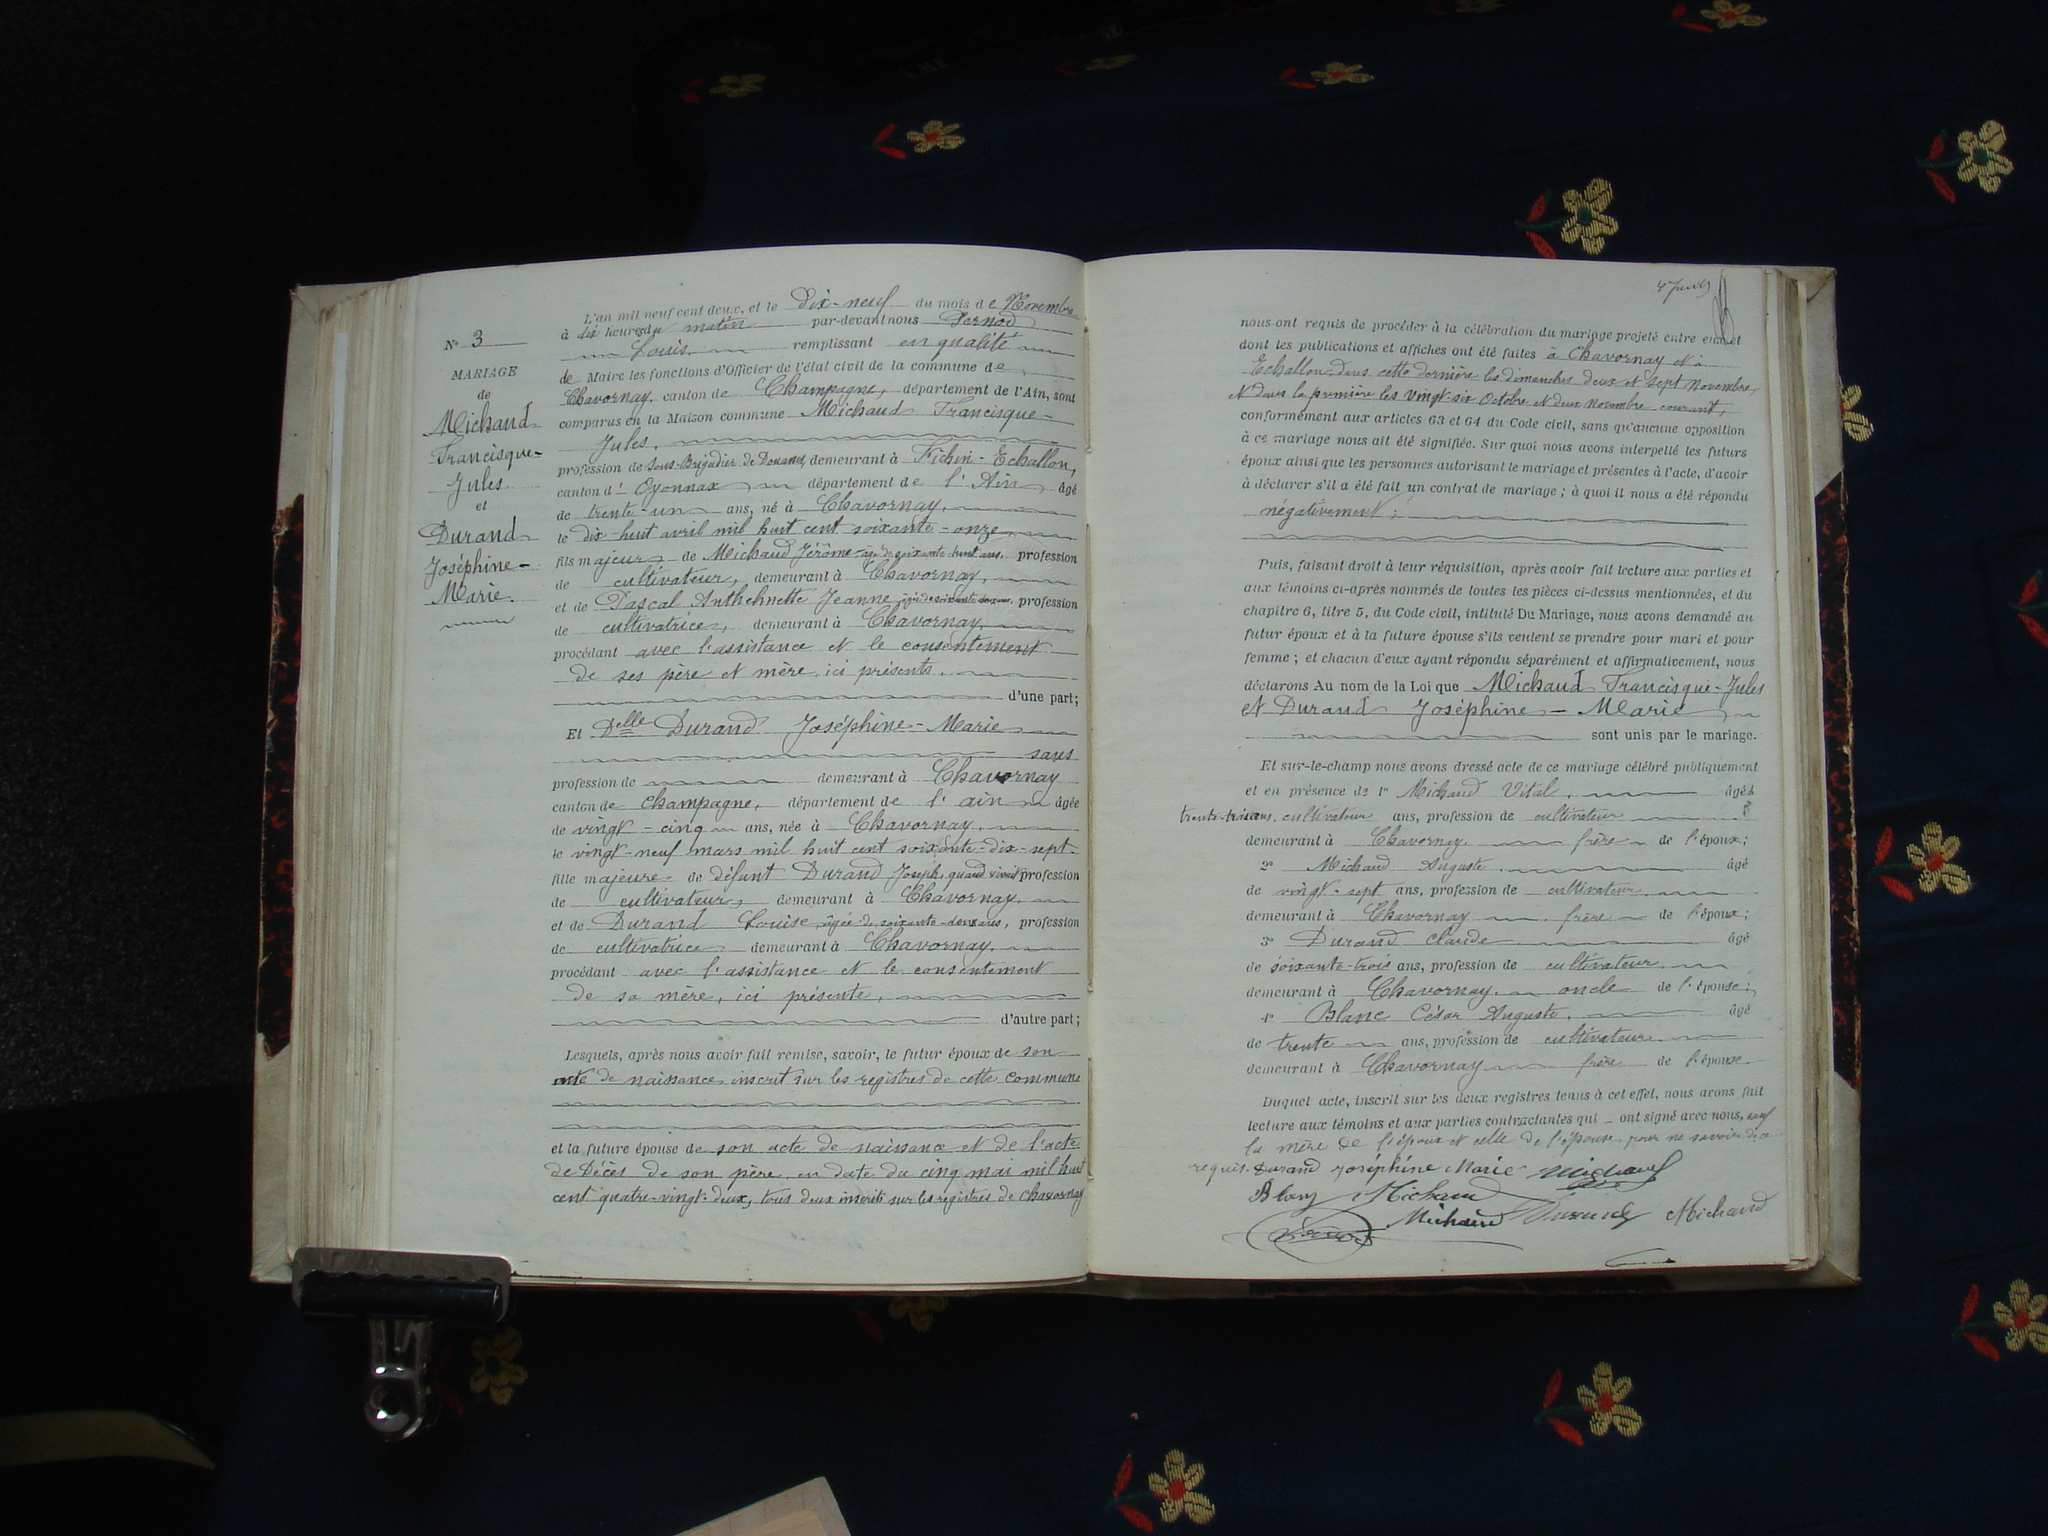 N° 3
MARIAGE
de
Michaud
Francisque-
Jules
et
Durand
Joséphine-
Marie.
L'an mil neuf cent deux, et le Dix-neuf du mois de Novembre
à dix heures du matin par-devant nous Pernod
Louis. remplissant en qualité
de Maire les fonctions d'Officier de l'état civil de la commune de
Chavornay, canton de Champagne, département de l'Ain, sont
comparus en la Maison commune Michaud Francisque-
Jules.
profession de Sous-Brigadier de Douanes, demeurant à Echallon,
canton d' Oyonnax département de l'Ain âgé
de trente-un ans, né à Chavornay,
le dix-huit avril mil huit cent soixante-onze,
fils majeur de Michaud Jérôme âgé de soixante-huit ans, profession
de cultivateur, demeurant à Chavornay,
et de Pascal Anthelmette Jeanne, profession
de cultivatrice, demeurant à Chavornay,
procédant avec l'assistance et le consentement
de ses père et mère, ici présents.
d'une part;
Et Delle Durand Joséphine-Marie
sans
profession de demeurant à Chavornay
canton de Champagne, département de l'ain âgée
de vingt-cinq ans, née à Chavornay.
le vingt-neuf mars mil huit cent soixante-dix-sept.
fille majeure de défunt Durand Joseph, quand vivait profession
de cultivateur, demeurant à Chavornay,
et de Durand Louise, âgée de soixante-deux ans, profession
de cultivatrice demeurant à Chavornay,
procédant avec l'assistance et le consentement
de sa mère, ici présente,
d'autre part;
Lesquels, après nous avoir fait remise, savoir, le futur époux de son
acte de naissance inscrit sur les registres de cette commune
et la future épouse de son acte de naissance et de l'acte
de Décès de son père, en date du cinq mai mil huit
cent quatre-vingt-deux, tous deux inscrits sur les registres de Chavornay
nous ont requis de procéder à la célébration du mariage projeté entre eux et
dont les publications et affiches ont été faites à Chavornay et à
Echallon, dans cette dernière les dimanches deux et sept novembre,
et dans la première les vingt-six Octobre et deux novembre courant,
conformément aux articles 63 et 64 du Code civil, sans qu'aucune opposition
à ce mariage nous ait été signifiée. Sur quoi nous avons interpellé les futurs
époux ainsi que les personnes autorisant le mariage et présentes à l'acte, d'avoir
à déclarer s'il a été fait un contrat de mariage; à quoi il nous a été répondu
négativement;
Puis, faisant droit à leur réquisition, après avoir fait lecture aux parties et
aux témoins ci-après nommés de toutes les pièces ci-dessus mentionnées, et du
chapitre 6, titre 5, du Code civil, intitulé Du Mariage, nous avons demandé au
futur époux et à la future épouse s'ils veulent se prendre pour mari et pour
femme; et chacun d'eux ayant répondu séparément et affirmativement, nous
déclarons Au nom de la Loi que Michaud Francisque-Jules
et Durand Joséphine-Marie
sont unis par le mariage.
Et sur-le-champ nous avons dressé acte de ce mariage célébré publiquement
et en présence de 1° Michaud Vital, âgé de
trente-trois ans, cultivateur ans, profession de cultivateur
demeurant à Chavornay frère de l'époux;
2° Michaud Auguste âgé
de vingt-sept ans, profession de cultivateur
demeurant à Chavornay frère de l'époux;
3° Durand Claude âgé
de soixante-trois ans, profession de cultivateur
demeurant à Chavornay oncle de l'épouse;
4° Blanc César Auguste, âgé
de trente ans, profession de cultivateur
demeurant à Chavornay frère de l'épouse
Duquel acte, inscrit sur les deux registres tenus à cet effet, nous avons fait
lecture aux témoins et aux parties contractantes qui ont signé avec nous, sauf
la mère de l'époux et celle de l'épouse pour ne savoir de ce
requis. Durand Joséphine Marie Michaud
Blanc Michaud
Michaud Durand Michaud